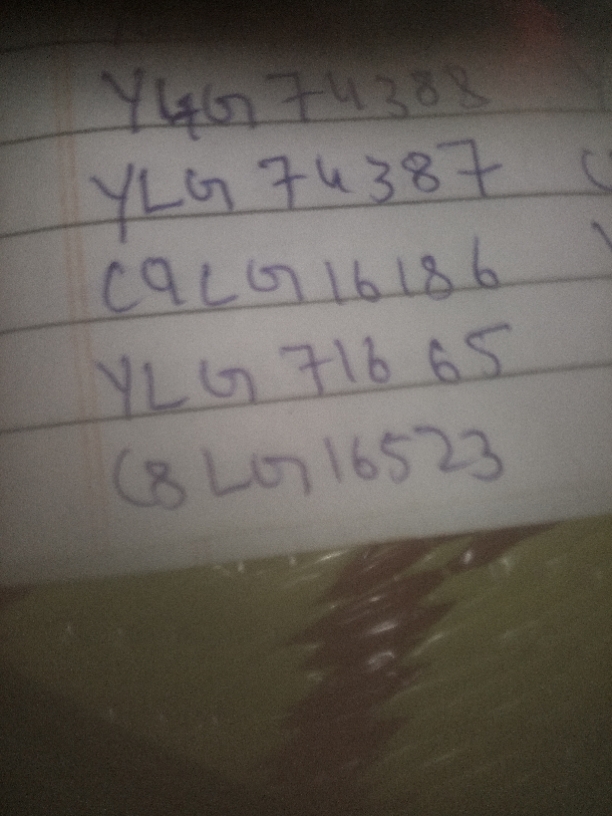 YLG 74388
YLG 74387
C9LG 16186
YLG 71665
C8LG 16523